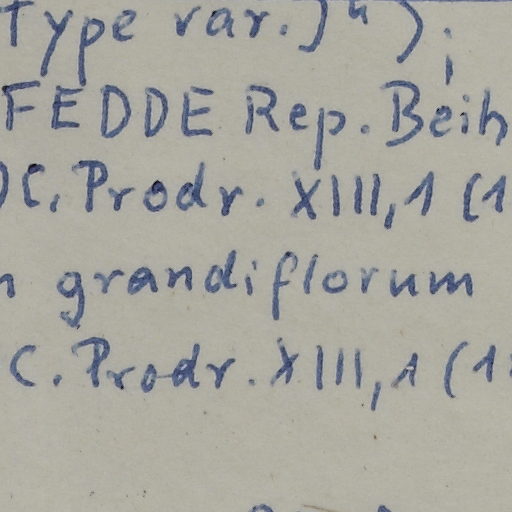 Type var.]");
FEDDE Rep. Beih
DC. Prodr. XIII,1 (1
grandiflorum
C. Prodr. XIII,1 (1